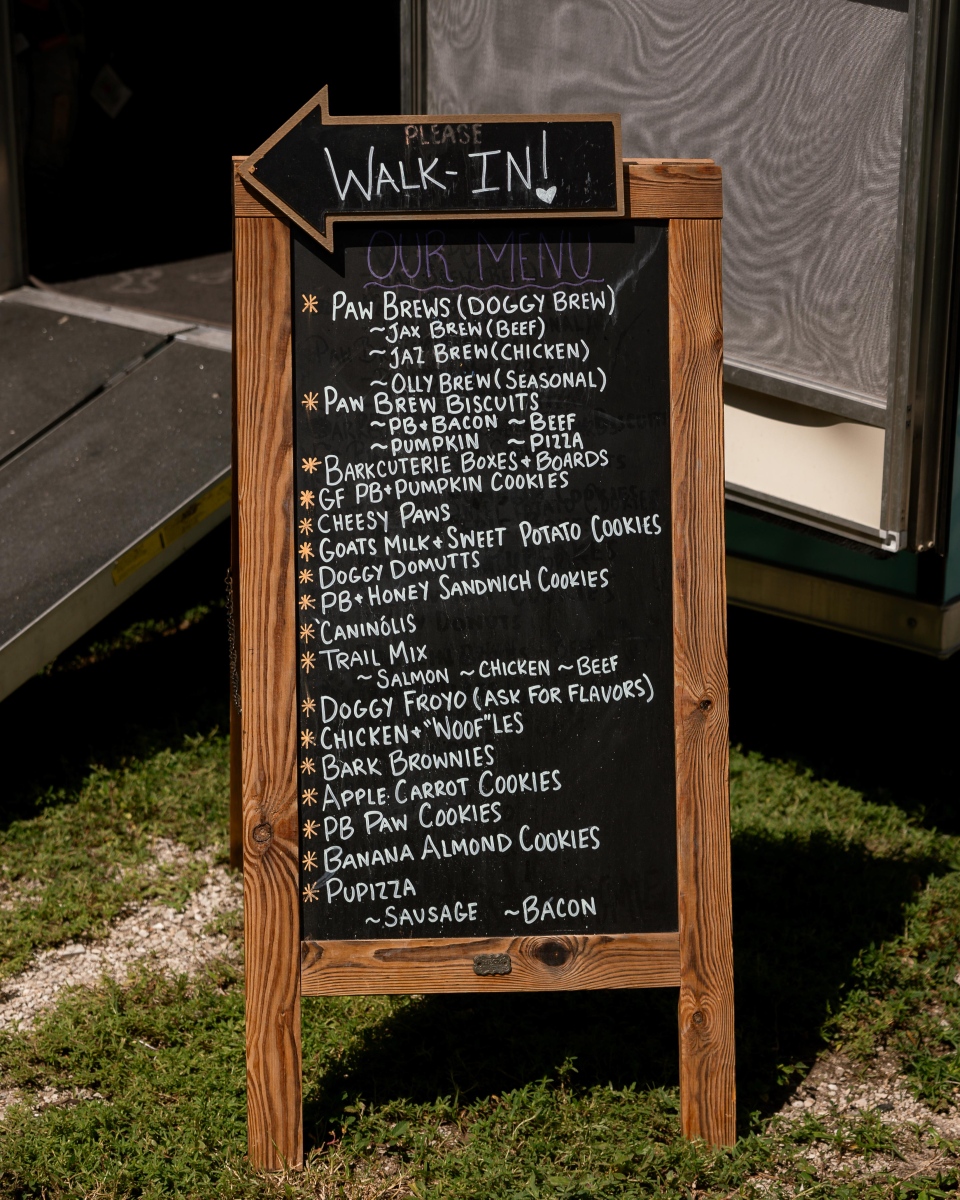 PLEASE
WALK-IN!
OUR MENU
* PAW BREWS (DOGGY BREW)
~JAX BREW (BEEF)
~JAZ BREW (CHICKEN)
~OLLY BREW (SEASONAL)
* PAW BREW BISCUITS
~PB+BACON ~BEEF
~PUMPKIN ~PIZZA
* BARKCUTERIE BOXES + BOARDS
* GF PB+PUMPKIN COOKIES
* CHEESY PAWS
* GOATS MILK + SWEET POTATO COOKIES
* DOGGY DOMUTTS
* PB+HONEY SANDWICH COOKIES
* 'CANINÓLIS
* TRAIL MIX
~SALMON ~CHICKEN ~BEEF
* DOGGY FROYO (ASK FOR FLAVORS)
* CHICKEN + "WOOF"LES
* BARK BROWNIES
* APPLE CARROT COOKIES
* PB PAW COOKIES
* BANANA ALMOND COOKIES
* PUPIZZA
~SAUSAGE ~BACON